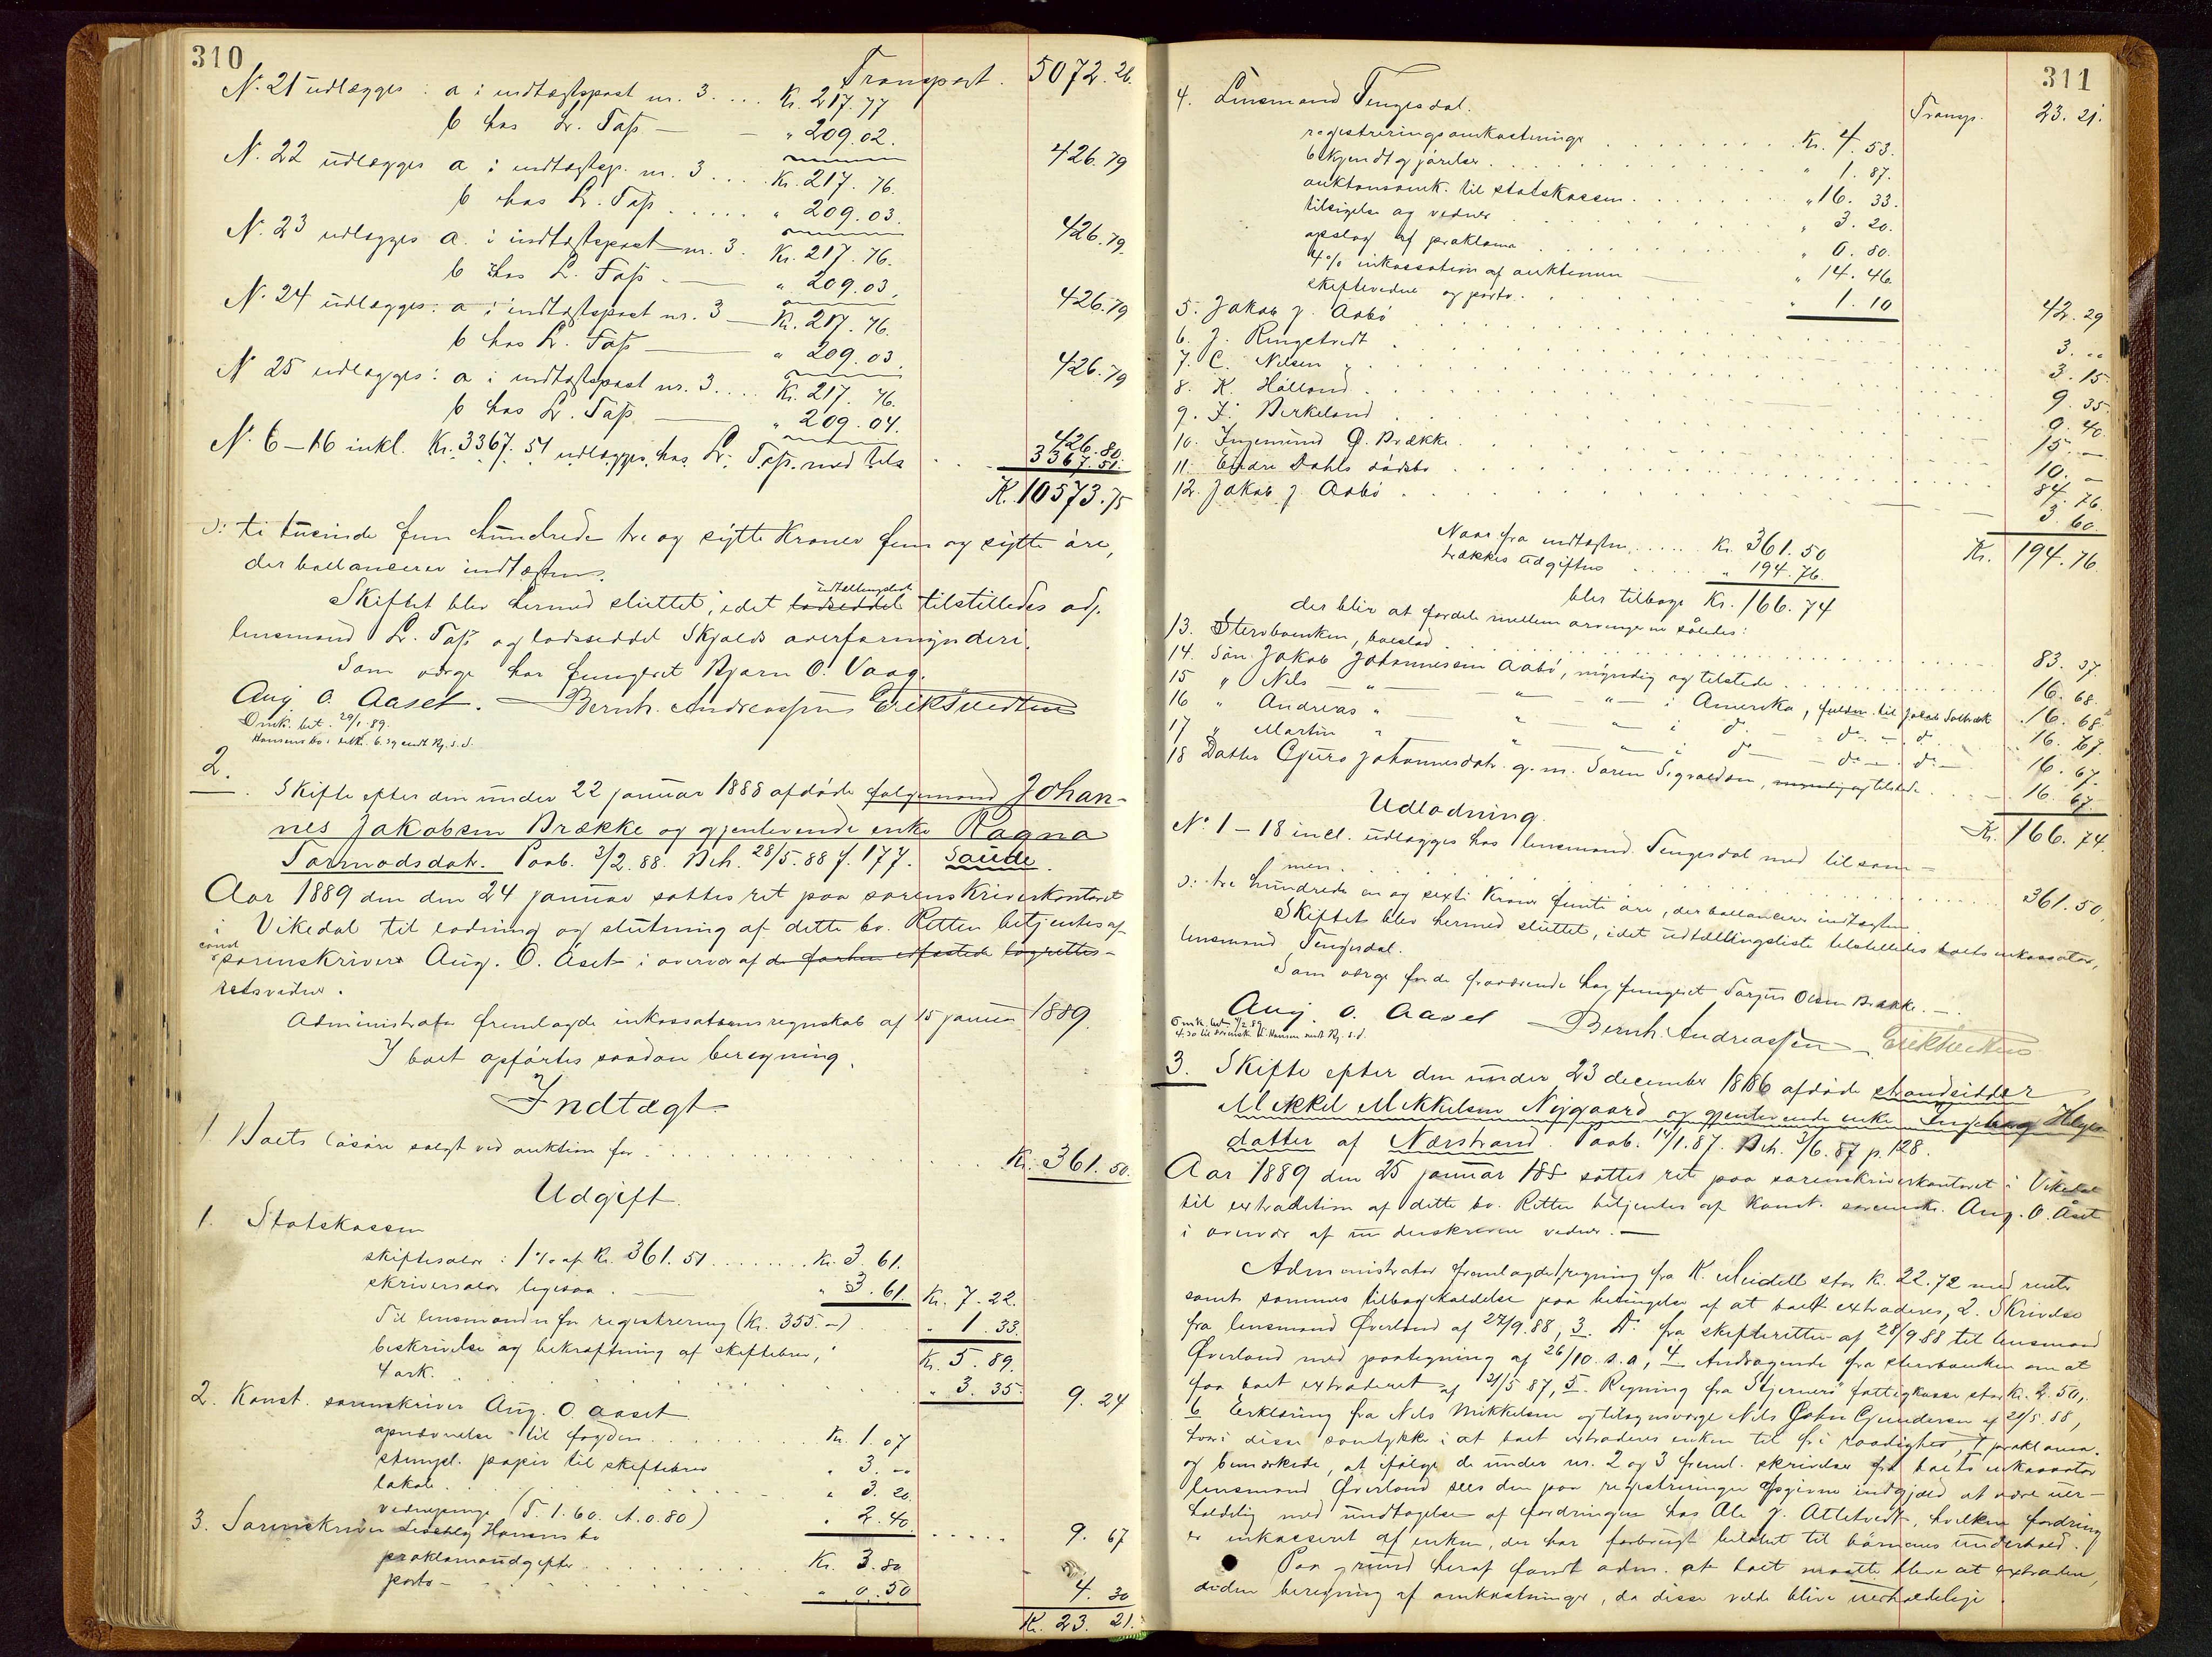 310
Transport. 5072.26.
N. 21 udlægges: a i indtægtspost nr. 3. ... Kr. 217.77
b hos L. Tafs — — " 209.02. 426.79
N. 22 udlægges a i indtægtsp. nr. 3 .... Kr. 217.76.
b hos L. Tafs ..... " 209.03. 426.79.
N. 23 udlægges a. i indtægtspost nr. 3. Kr. 217.76.
b hos L. Tafs . — " 209.03. 426.79
N. 24 udlægges: a i indtægtspost nr. 3 — Kr. 217.76
b hos L. Tafs — " 209.03. 426.79
N 25 udlægges: a i indtægtspost nr. 3.... Kr. 217.76.
b hos L. Tafs — " 209.04. 426.80.
N. 6-16 inkl. Kr. 3367.51 udlægges hos L. Tafs. med tils 3367.51.
K. 10573.75
ɔ: ti tusinde fem hundrede tre og sytti Kroner fem og sytti øre,
der ballancerer indtægten.
Skiftet blev hermed sluttet, idet lodseddel udtællingsliste tilstilledes adj.
lensmand L. Tafs og lodsseddel Skjolds overformynderi.
Som værge har fungeret Bjørn O. Vaag.
Aug. O. Aaset. — Bernh. Andreassen Erik Tvedten
Omk. bet. 29/1 89.
2. Skifte efter den under 22 januar 1888 afdøde folgemand Johan-
nes Jakobsen Brække og gjenlevende enke Ragna
Tormodsdat. Paab. 3/2. 88. Beh. 28/5. 88 f. 177. Saude.
Aar 1889 den den 24 januar sattes ret paa sorenskriverkontoret
i Vikedal til lodning og slutning af dette bo. Retten betjentes af
const sorenskriver Aug. O. Åset i overvær af de forhen edfæstede lagrettes-
retsvidner.
Administrator fremlagde inkassationsregnskab af 15 januar 1889.
I boet opførtes saadan beregning.
Indtægt.
1. Boets løsøre solgt ved auktion for ........ Kr. 361.50.
Udgift.
1. Statskassen
skiftesalær: 1% af Kr. 361.51 ........ Kr. 3.61.
skriversalær ligesaa. — " 3.61. Kr. 7.22.
Til lensmanden for registrering (Kr. 355.—) " 1.33.
Kr. 5.89.
beskrivelse og bekræftning af skiftebrev,
4 ark. ... " 3.35. 9.24
2. Konst. sorenskriver Aug. O. Aaset
opnævnelse til fogden ........ Kr. 1.07
stempl. papir til skiftebrev " 3.--
lokale ........ " 3.20.
vidnepenge (T. 1.60. A. 0.80) " 2.40. ..... 9.67
3. Sorenskriver Ledebley Hansens bo
proklamaudgifter ........ Kr. 3.80
porto — ........ " 0.50 4.30
Kr. 23.21.
311
Transp. 23.21.
4. Lensmand Tengesdal.
registreringsomkostninger ........ Kr. 4.53.
bekjendtgjørelser ........ " 1.87.
auktionsomk. til statskassen ........ " 16.33.
tilsigelse og vidner ........ " 3.20.
opslag af proklama ........ " 0.80.
4% inkassation af auktionen — " 14.46.
skiftevidne og porto ........ " 1.10 42.29
5. Jakob J. Aabø ........ 3.--
6. J. Ringstvedt ........ 3.15.
7. C. Nilsen ........ 9.35.
8. K. Hålland ........ 9.40.
9. J. Birkeland ........ 15.—
10. Ingemund O. Brække ........ 10.—
11. Endre Dahls dødsbo ........ 84.76.
12. Jakob J. Aabø ........ 3.60.
Kr. 194.76.
Naar fra indtægten ..... Kr. 361.50
trækkes udgiften ..... " 194.76.
blir tilbage Kr. 166.74
der blir at fordele mellem arvingerne således:
13. Stervboenken, boeslod ........ 83.37.
14. Søn Jakob Johannesen Aabø, myndig og tilstede ........ 16.68.
15 " Nils " — " — i Amerika, fuldm. til Jakob 16.68.
16 " Andreas " — " — i do. — do. — do. 16.67.
17 " Martin " — " — i do — do. — do. — 16.67.
18 Datter Gjuro Johannesdat. g. m. Søren Sigvaldsen, myndig og tilstede ..... 16.67.
Kr. 166.74.
Udlodning.
No. 1-18 incl. udlægges hos lensmand Tengesdal med tilsam-
men ........ 361.50.
ɔ: tre hundrede en og sexti Kroner femti øre, der ballancerer indtægten.
Skiftet blev hermed sluttet, idet udtællingsliste tilstilledes boets inkassator,
lensmand Tengesdal.
Som værge for de fraværende har fungeret Torgius Olsen Brække. —
Aug. O. Aaset — Bernh. Andreassen — Erik Tvedten
3. Skifte efter den under 23 december 1886 afdøde strandsidder
Mikkel Mikkelsen Nygaard og gjenlevende enke Ingeborg Helges
datter af Nærstrand. Paab. 14/1. 87. Beh. 3/6. 87 p. 128.
Aar 1889 den 25 januar 188 sattes ret paa sorenskriverkontoret i Vikedal
til extradition af dette bo. Retten betjentes af konst. sorenskr. Aug. O. Åset
i overvær af underskrevne vidner. —
Administrator fremlagde 1, regning fra K. Meidell stor Kr. 22.72 med renter
samt sammes tilbagekaldelse paa betingelse af at boet extraderes, 2. Skrivelse
fra lensmand Øverland af 22/9. 88, 3. Do. fra skifteretten af 28/9 88 til lensmand
Øverland med paategning af 26/10. s.a, 4 Andragende fra stervboenken om at
faa boet extraderet af 21/5 87, 5. Regning fra Stjernerø fattigkasse stor Kr. 2.50,
6 Erklæring fra Nils Mikkelsen og tilsynsværge Nils John Gundersen af 21/5. 88,
hvori disse samtykke i at boet extraderes enken til fri raadighed, 7 proklama.
og bemærkede, at ifølge de under nr. 2 og 3 freml. skrivelser fra boets inkassator
lensmand Øverland sees den paa registreringen opgivne indgjæld at være uer-
holdelig med undtagelse af fordringen hos Ole J. Attletvedt, hvilken fordring
er inkasseret af enken, der har forbrugt beløbet til børnenes underhold.
Paa grund heraf fandt adm. at boet maatte blive at extradere,
uden beregning af omkostninger, da disse vilde blive uerholdelige